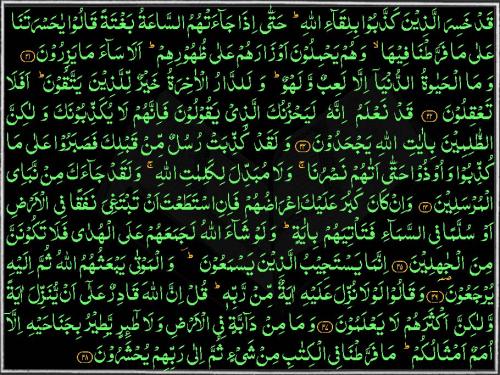 قَدْ خَسِرَ الَّذِيْنَ كَذَّبُوْا بِلِقَآءِ اللهِ ؕ حَتّٰۤى اِذَا جَآءَتْهُمُ السَّاعَةُ بَغْتَةً قَالُوْا يٰحَسْرَتَنَا
عَلٰى مَا فَرَّطْنَا فِيْهَا ۙ وَهُمْ يَحْمِلُوْنَ اَوْزَارَهُمْ عَلٰى ظُهُوْرِهِمْ ؕ اَلَا سَآءَ مَا يَزِرُوْنَ ۝۳۱
وَ مَا الْحَيٰوةُ الدُّنْيَاۤ اِلَّا لَعِبٌ وَّ لَهْوٌ ؕ وَ لَلدَّارُ الْاٰخِرَةُ خَيْرٌ لِّلَّذِيْنَ يَتَّقُوْنَ ؕ اَفَلَا
تَعْقِلُوْنَ ۝۳۲ قَدْ نَعْلَمُ اِنَّهٗ لَيَحْزُنُكَ الَّذِيْ يَقُوْلُوْنَ فَاِنَّهُمْ لَا يُكَذِّبُوْنَكَ وَ لٰكِنَّ
الظّٰلِمِيْنَ بِاٰيٰتِ اللهِ يَجْحَدُوْنَ ۝۳۳ وَ لَقَدْ كُذِّبَتْ رُسُلٌ مِّنْ قَبْلِكَ فَصَبَرُوْا عَلٰى مَا
كُذِّبُوْا وَ اُوْذُوْا حَتّٰۤى اَتٰىهُمْ نَصْرُنَا ۚ وَ لَا مُبَدِّلَ لِكَلِمٰتِ اللهِ ۚ وَ لَقَدْ جَآءَكَ مِنْ نَّبَاِى
الْمُرْسَلِيْنَ ۝۳۴ وَ اِنْ كَانَ كَبُرَ عَلَيْكَ اِعْرَاضُهُمْ فَاِنِ اسْتَطَعْتَ اَنْ تَبْتَغِيَ نَفَقًا فِي الْاَرْضِ
اَوْ سُلَّمًا فِي السَّمَآءِ فَتَاْتِيَهُمْ بِاٰيَةٍ ؕ وَ لَوْ شَآءَ اللهُ لَجَمَعَهُمْ عَلَى الْهُدٰى فَلَا تَكُوْنَنَّ
مِنَ الْجٰهِلِيْنَ ۝۳۵ اِنَّمَا يَسْتَجِيْبُ الَّذِيْنَ يَسْمَعُوْنَ ؕ وَ الْمَوْتٰى يَبْعَثُهُمُ اللهُ ثُمَّ اِلَيْهِ
يُرْجَعُوْنَ ۝۳۶ وَ قَالُوْا لَوْ لَا نُزِّلَ عَلَيْهِ اٰيَةٌ مِّنْ رَّبِّهٖ ؕ قُلْ اِنَّ اللهَ قَادِرٌ عَلٰۤى اَنْ يُّنَزِّلَ اٰيَةً
وَّ لٰكِنَّ اَكْثَرَهُمْ لَا يَعْلَمُوْنَ ۝۳۷ وَ مَا مِنْ دَآبَّةٍ فِي الْاَرْضِ وَ لَا طٰٓئِرٍ يَّطِيْرُ بِجَنَاحَيْهِ اِلَّاۤ
اُمَمٌ اَمْثَالُكُمْ ؕ مَا فَرَّطْنَا فِي الْكِتٰبِ مِنْ شَيْءٍ ثُمَّ اِلٰى رَبِّهِمْ يُحْشَرُوْنَ ۝۳۸